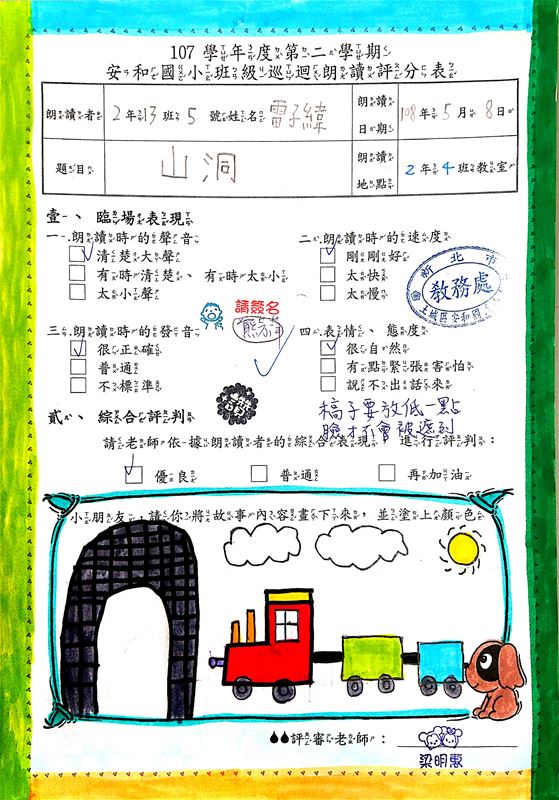 107 學年度第二學期
安和國小班級巡迴朗讀評分表
朗讀者 2年13班5號姓名 電子緯 朗讀日期 108年5月8日
題目 山洞 朗讀地點 2年4班教室
壹、臨場表現
一.朗讀時的聲音
清楚大聲
有時清楚、有時太小
太小聲
二.朗讀時的速度
剛剛好
太快
太慢
新北市
教務處
土城區安和國
請簽名
三.朗讀時的發音
很正確
普通
不標準
四.表情、態度
很自然
有點緊張害怕
說不出話來
稿子要放低一點
臉才不會被遮到
貳、綜合評判
請老師依據朗讀者的綜合表現 進行評判：
優良 普通 再加油
小朋友，請你將故事內容畫下來，並塗上顏色
評審老師：
梁明惠